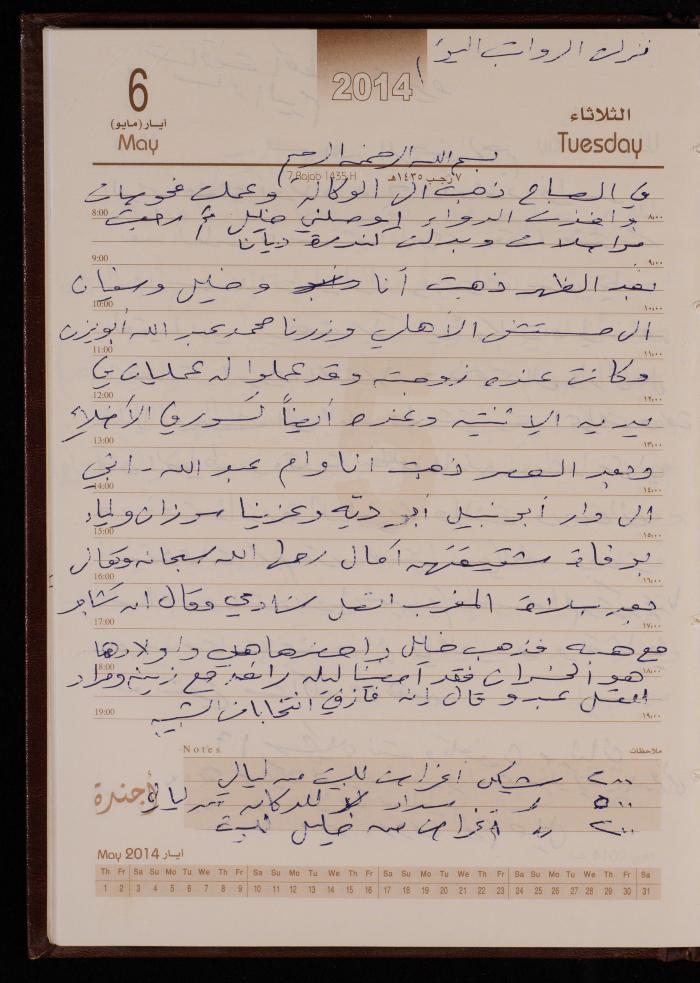 نزلت الرواتب اليوم
2014
6
أيار (مايو)
May
الثلاثاء
Tuesday
بسم الله الرحمن الرحيم
7 Rajab 1435 H
٧ رجب ١٤٣٥هـ
في الصباح ذهبت الى الوكالة وعملت فحوصات
8:00
وأخذت الدواء أوصلني خليل رجعت
٨،٠٠
مواصلات وبدلت كندرة ديانا
9:00
٩،٠٠
بعد الظهر ذهبت أنا وخليل وسفيان
10:00
١٠،٠٠
الى مستشفى الأهلي وزرنا محمد عبد الله أبو
11:00
١١،٠٠
وكانت عنده زوجته وقد عملوا له عمليات في
12:00
١٢،٠٠
يديه الاثنتين وعنده أيضاً كسور في الأضلاع
13:00
١٣،٠٠
وبعد العصر ذهبت أنا وأم عبد الله
14:00
١٤،٠٠
الى دار أبو نبيل أبو ديّه وعزينا سوزان ولمياء
15:00
١٥،٠٠
بوفاة شقيقتهم آمال رحمها الله سبحانه وتعالى
16:00
١٦،٠٠
بعد صلاة المغرب اتصل شادي وقال انه تشاجر
17:00
١٧،٠٠
مع هبه فذهب خليل وأحضرها هي وأولادها
18:00
١٨،٠٠
هو الخسران فقد أمضينا ليلة رائعة مع زينه ومراد
اتصل عبد وقال إنه فاز في انتخابات الشبيبه
19:00
١٩،٠٠
Notes
ملاحظات
٢٠٠ شيكل أغراض للبيت من ليالي
٥٠٠ سداد للدكانه من ليالي
٢٠٠ أغراض من خليل للبيت
أجندة
May 2014 أيار
Th Fr Sa Su Mo Tu We Th Fr Sa Su Mo Tu We Th Fr Sa Su Mo Tu We Th Fr Sa Su Mo Tu We Th Fr Sa
1 2 3 4 5 6 7 8 9 10 11 12 13 14 15 16 17 18 19 20 21 22 23 24 25 26 27 28 29 30 31